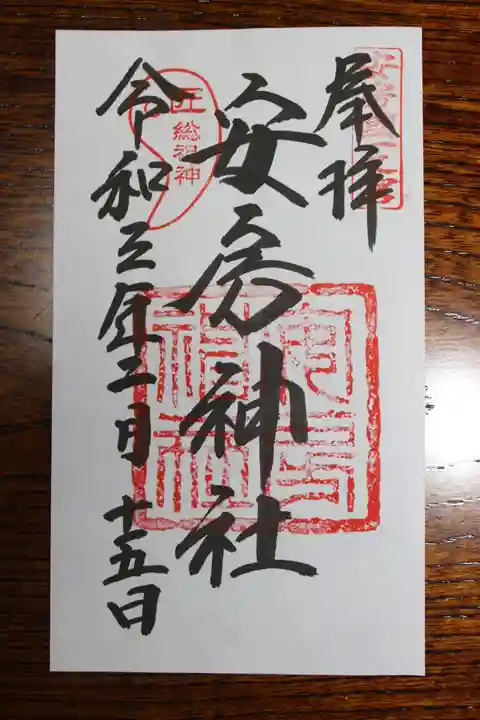 奉拝
安房神社
令和三年二月十五日
匠
総祖神
安房神社